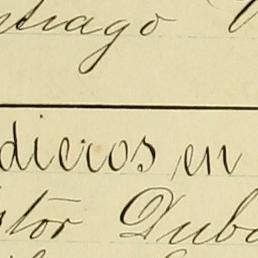 tiago
dieros en
stor Dubo